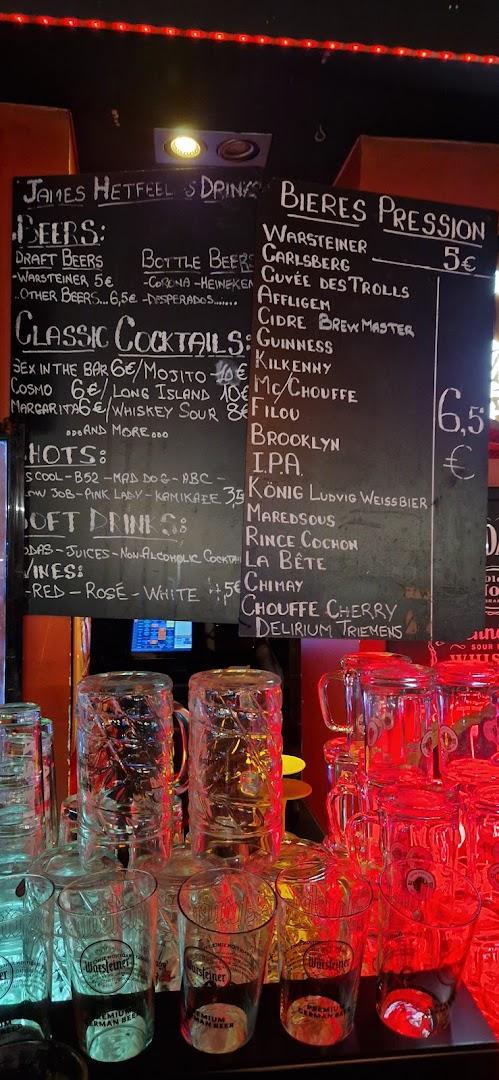 JAMES HETFEEL S DRINKS
BEERS:
DRAFT BEERS
-WARSTEINER 5€
..OTHER BEERS...6,5€
BOTTLE BEERS
-CORONA-HEINEKEN
-DESPERADOS.......
CLASSIC COCKTAILS:
SEX IN THE BAR 6€/MOJITO-10€
COSMO 6€/LONG ISLAND 10€
MARGARITA 6€/WHISKEY SOUR 8€
...AND MORE...
HOTS:
COOL-B52-MAD DOG-ABC-
OW JOB-PINK LADY-KAMIKAZE 3,5
OFT DRINKS:
ODAS-JUICES-NON ALCOHOLIC COCKTAI
INES:
-RED-ROSÉ-WHITE 4,5€
BIERES PRESSION
WARSTEINER 5€
CARLSBERG
CUVÉE DES TROLLS
AFFLIGEM
CIDRE BREWMASTER
GUINNESS
KILKENNY
MC/CHOUFFE
FILOU
BROOKLYN
I.P.A.
KÖNIG LUDVIG WEISSBIER
MAREDSOUS
RINCE COCHON
LA BÊTE
CHIMAY
CHOUFFE CHERRY
DELIRIUM TRIEMENS
6,5
€
SOUR
Warsteiner
PREMIUM
GERMAN BEER
Warsteiner
PREMIUM
GERMAN BEER
Warsteiner
PREMIUM
GERMAN BEER